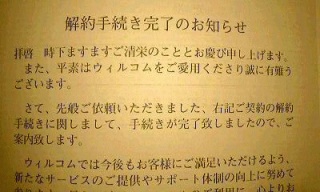 解約手続き完了のお知らせ
拝啓　時下ますますご清栄のこととお慶び申し上げます。
また、平素はウィルコムをご愛用くださり誠に有難う
ございます。
さて、先般ご依頼いただきました、右記ご契約の解約
手続きに関しまして、手続きが完了致しましたので、ご
案内致します。
ウィルコムでは今後もお客様にご満足いただけるよう、
新たなサービスのご提供やサポート体制の向上に努めて